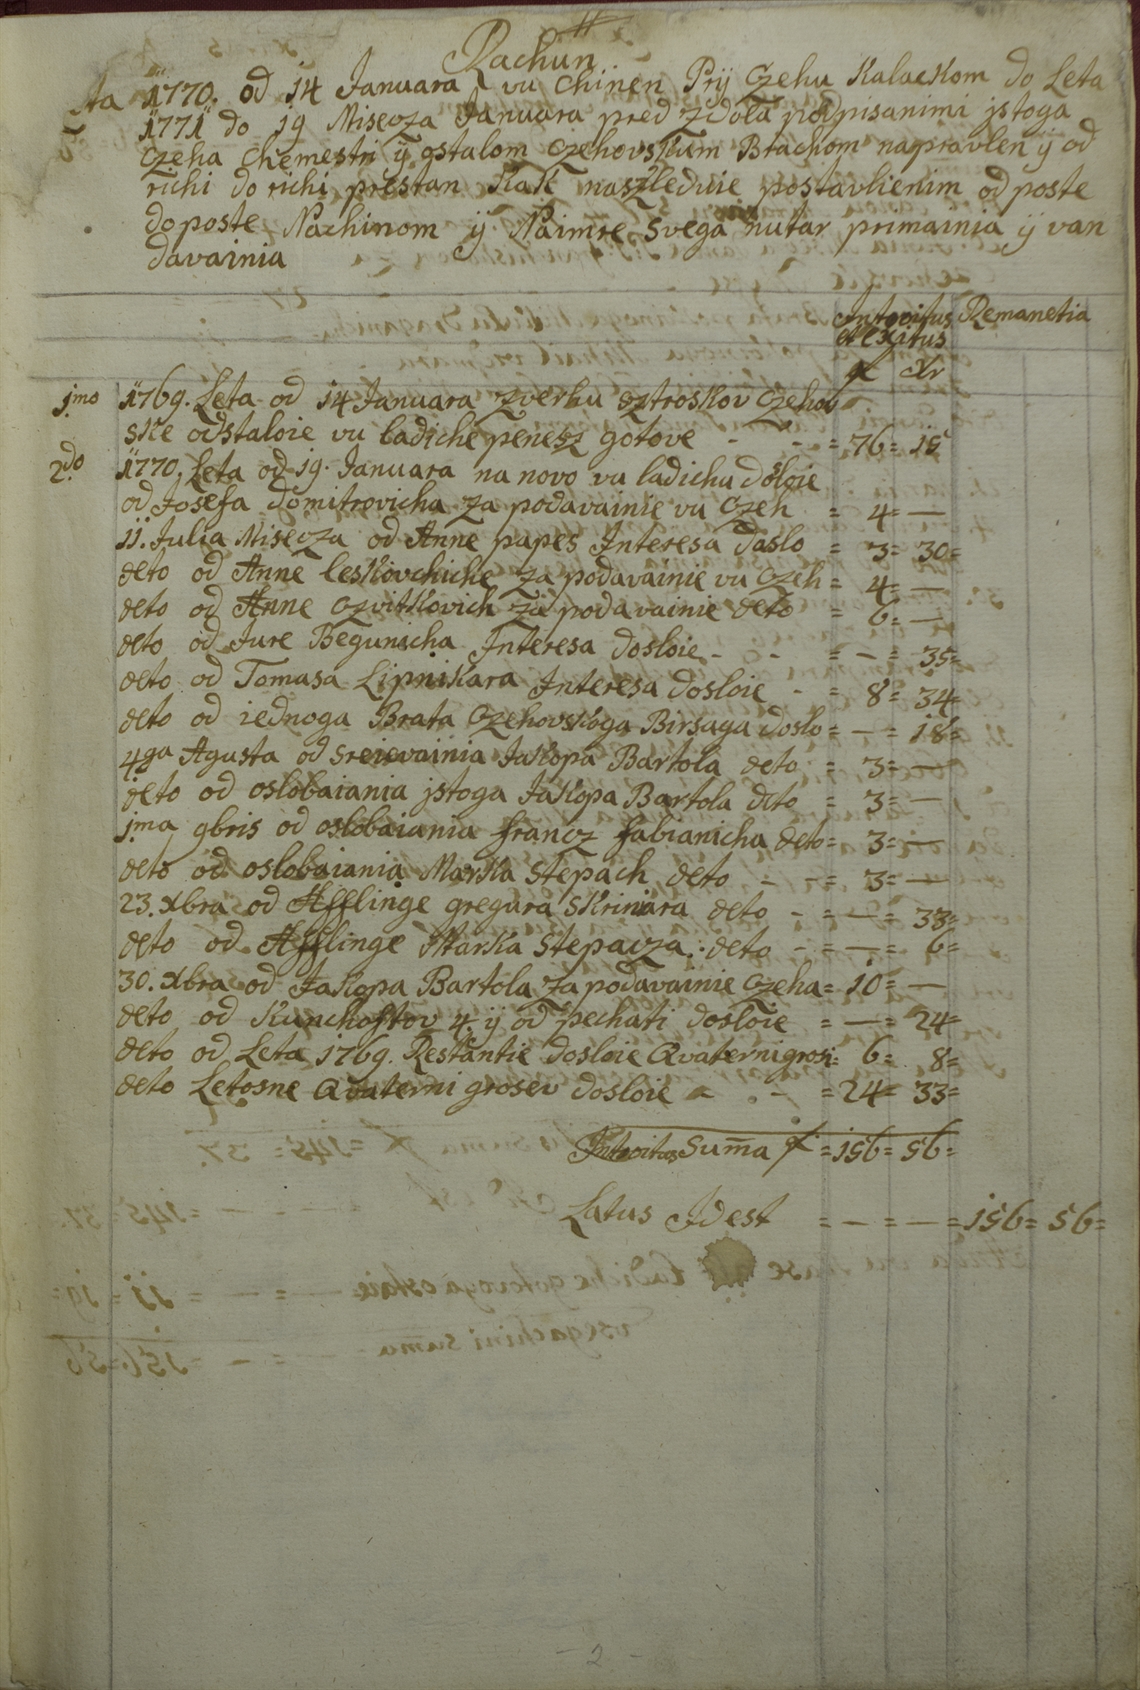 Rachun
Ao 1770. od 14 Januara vu chinen Prÿ Czehu Kalaekom do Leta
1771 do 19 Misecza Januara pred zdola podpisanimi jstoga
Czeha Chemestri ÿ ostalom Czehovskum Brachom napravlen ÿ od
richi do richi prestan Kak naszleduie postavlienim od poste
do poste Nachinom ÿ Naimre svega nutar primainia ÿ van
davainia
Introitus Remanetia
et Exitus
f Xr
1mo 1769. Leta od 14 Januara zverhu ztroskov Czehov
ske odstaloie vu ladiche penesz gotove - - = 76 = 15
2do 1770. Leta od 19. Januara na novo vu ladichu dosloie
od Josefa Domitrovicha za podavainie vu Czeh = 4 = —
11. Julia Misecza od Anne papes Interesa daslo = 3 = 30 =
deto od Anne Leskovchiche za podavainie vu Czeh = 4 = —
deto od Anne Czvitkovich za podavainie deto = 6 = —
deto od Jure Begunicha Interesa dosloie - - = — = 35 =
deto od Tomasa Lipnikara Interesa dosloie - = 8 = 34
deto od iednoga Brata Czehovskoga Birsaga doslo = — = 18 =
4ga Agusta od sreievainia Jakopa Bartola deto = 3 = —
deto od oslobaiania jstoga Jakopa Bartola dito = 3 = —
1ma 9bris od oslobaiania francz fabianicha deto = 3 = —
deto od oslobaiania Marka Stepach deto - - = 3 = —
23. Xbra od Afflinge gregura Skriniara deto - = — = 33 =
deto od Afflinge Marka Stepacza : deto - = — = 6 =
30. Xbra od Jakopa Bartola za podavainie Czeha = 10 = —
deto od Kunchoftov 4. ÿ od pechati dosloie = — = 24 =
deto od Leta 1769. Restantie dosloie Qvaterni grosi = 6 = 8 =
deto Letosne Qvaterni grosev dosloie - - = 24 = 33 =
Introitus Suma f = 156 = 56 =
Latus Idest = — = — = 156 = 56 =
- 2 -